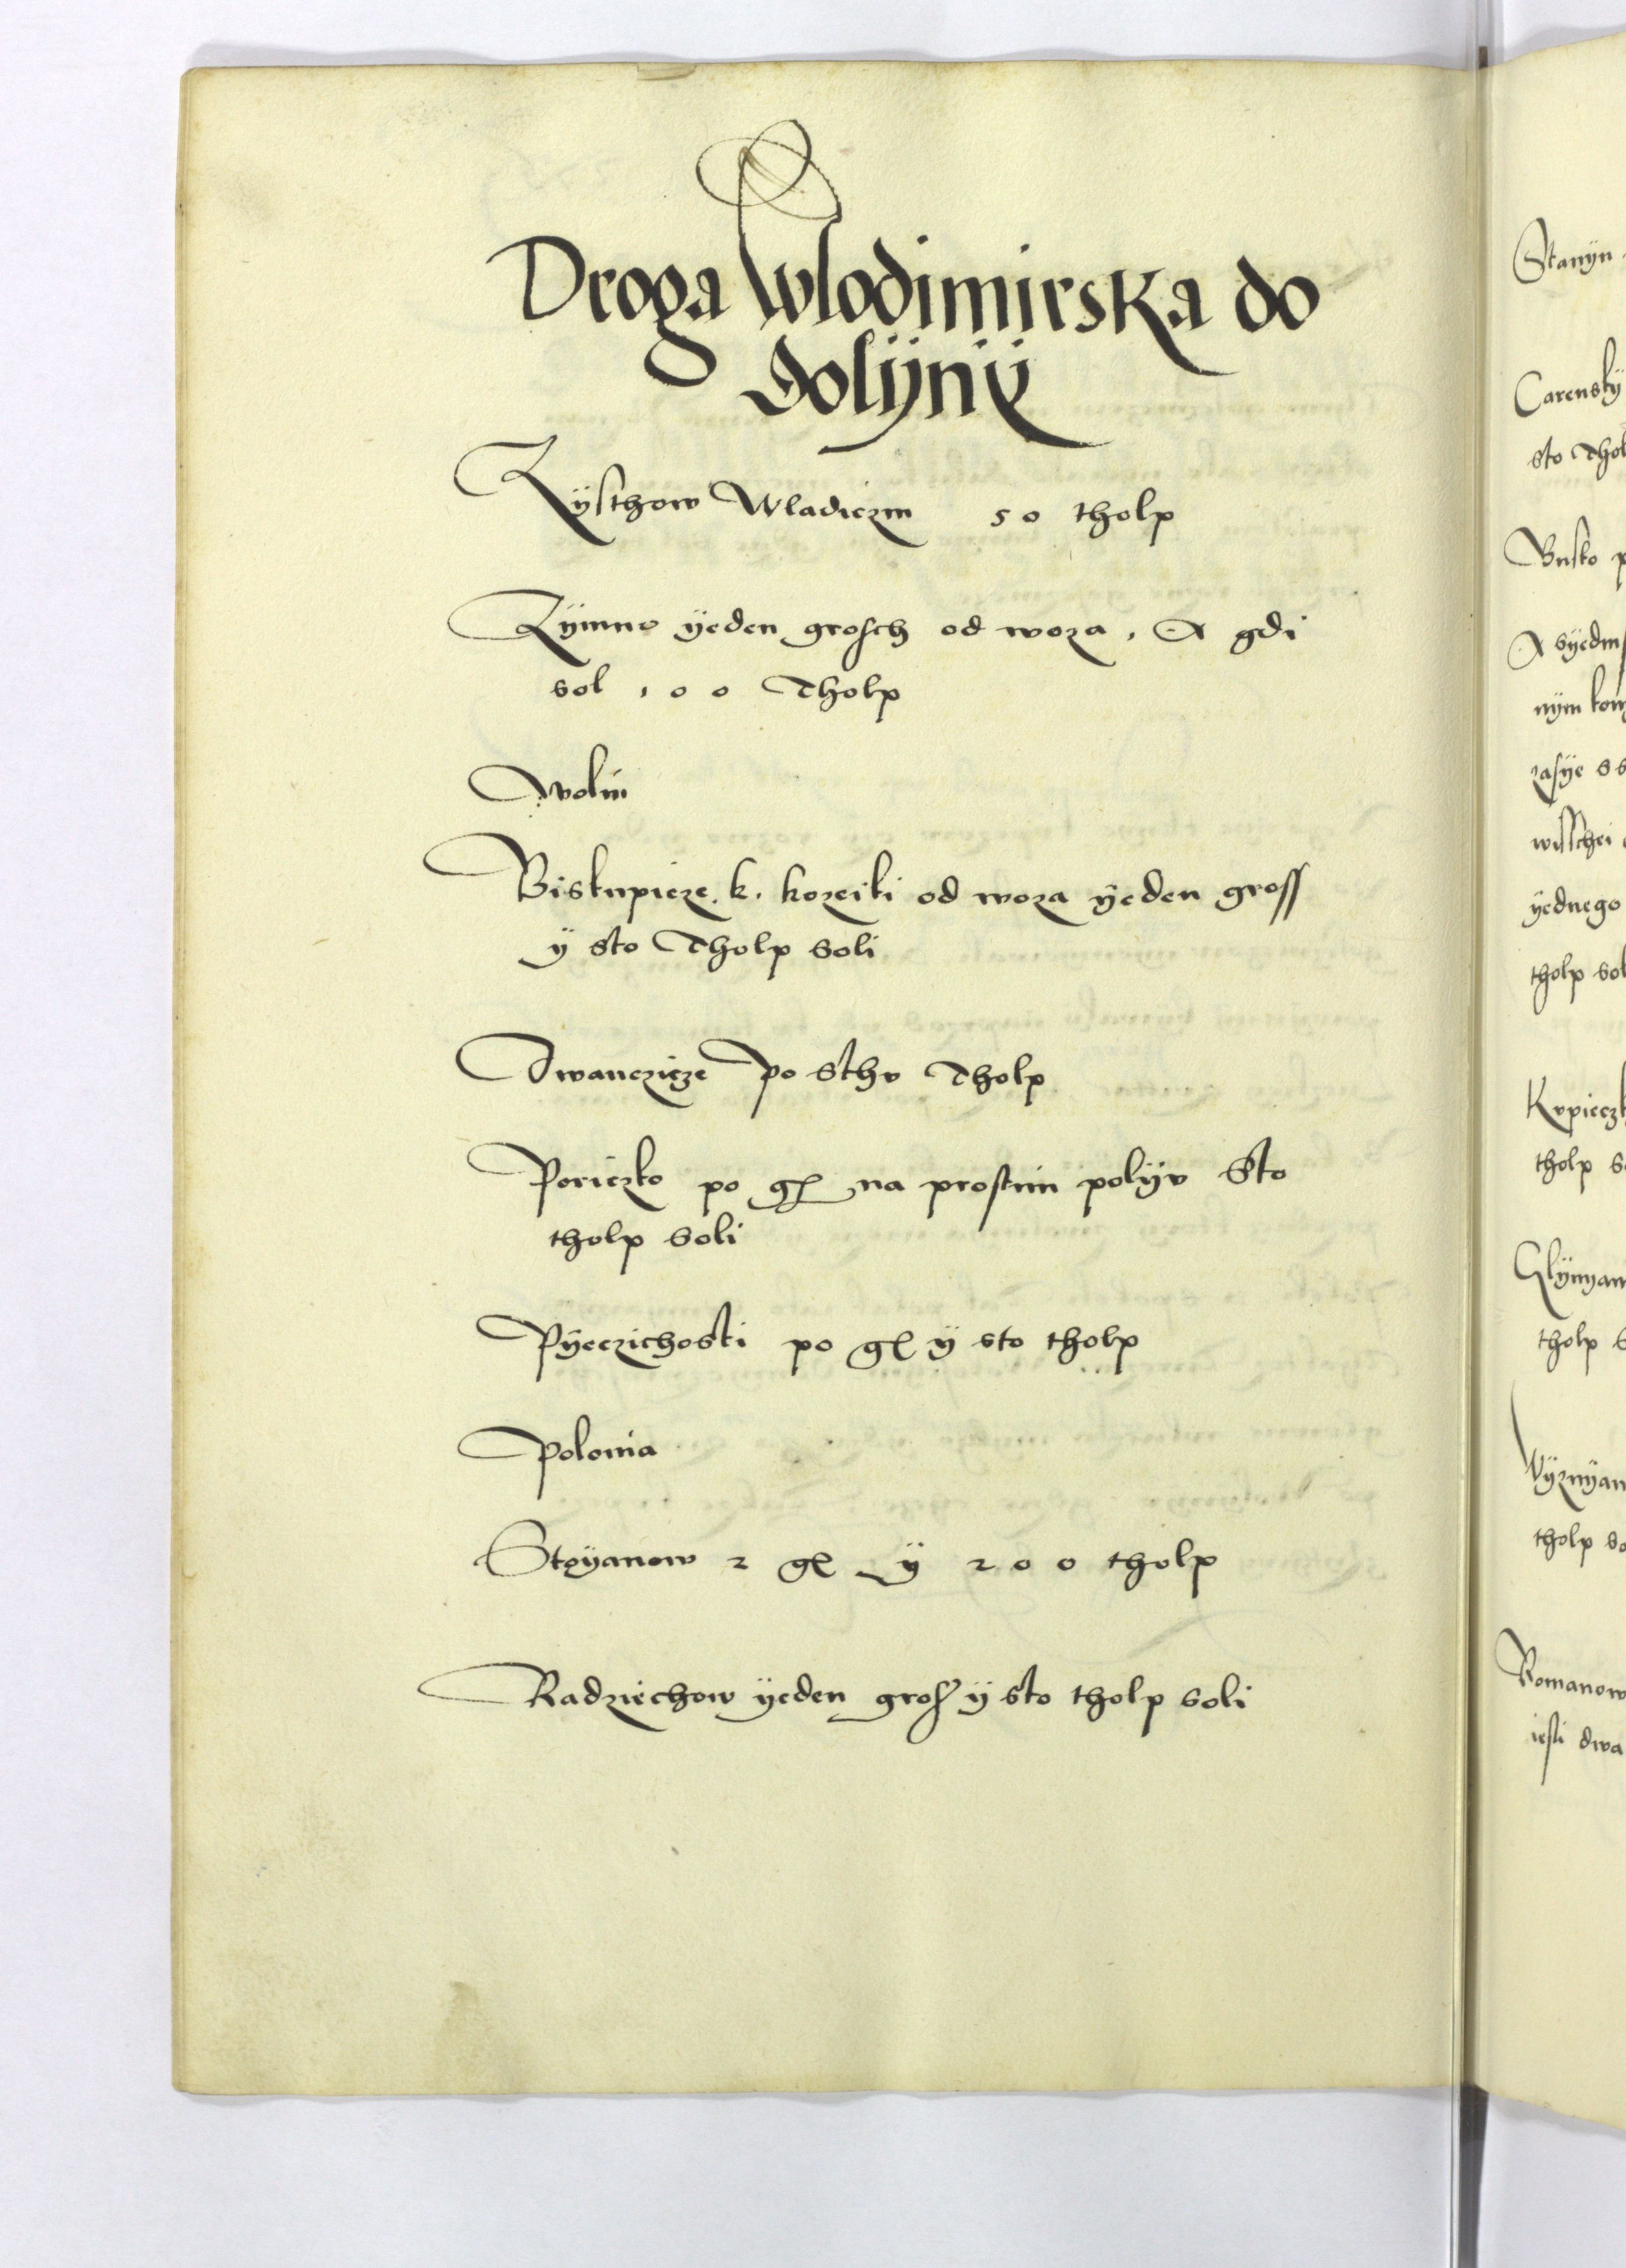 Droga wlodimirska do
dolÿnÿ
Zÿsthow Wladiczin 50 tholp
Zÿmno ÿeden grosch od woza, A gdi
sol 100 Tholp
Wolin
Biskupicze. k. kozeiki od woza ÿeden gross
ÿ sto Tholp soli
Iwanczicze po sthv Tholp
Poriczko po gr na prostim polÿv Sto
tholp soli
Pÿeczichosti po gr ÿ sto tholp
Polonia
Stoÿanow 2 gr ÿ 200 tholp
Radziechow ÿeden gros ÿ sto tholp soli
Stanÿn
Carenskÿ
sto Thol
Busko p
A sÿedm
nÿm konÿ
zasÿe
wisschei
ÿednego
tholp sol
Kvpiecz
tholp s
Glÿnÿan
tholp s
Wÿznÿan
tholp so
Romanow
iesli dwa